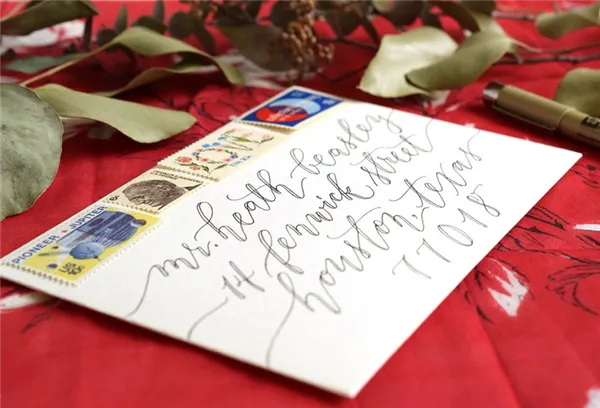 mr. heath beasley
14 fenwick street
houston, texas
77018
PIONEER ★ JUPITER